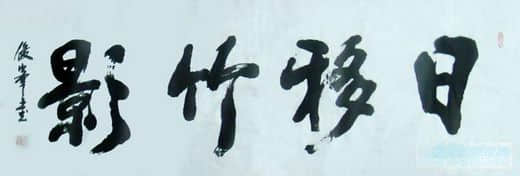 日移竹影
俊峯書